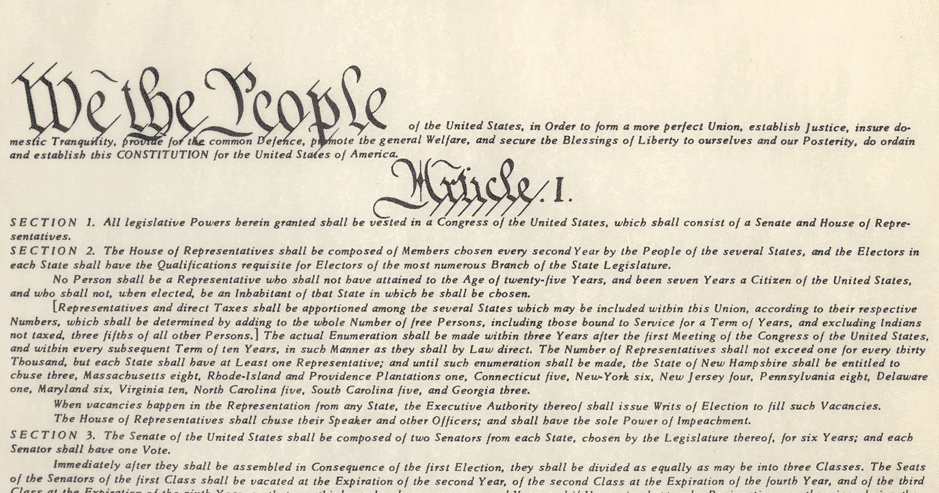 We the People of the United States, in Order to form a more perfect Union, establish Justice, insure do-
mestic Tranquility, provide for the common Defence, promote the general Welfare, and secure the Blessings of Liberty to ourselves and our Posterity, do ordain
and establish this CONSTITUTION for the United States of America.
Article. I.
SECTION 1. All legislative Powers herein granted shall be vested in a Congress of the United States, which shall consist of a Senate and House of Repre-
sentatives.
SECTION 2. The House of Representatives shall be composed of Members chosen every second Year by the People of the several States, and the Electors in
each State shall have the Qualifications requisite for Electors of the most numerous Branch of the State Legislature.
No Person shall be a Representative who shall not have attained to the Age of twenty-five Years, and been seven Years a Citizen of the United States,
and who shall not, when elected, be an Inhabitant of that State in which he shall be chosen.
[Representatives and direct Taxes shall be apportioned among the several States which may be included within this Union, according to their respective
Numbers, which shall be determined by adding to the whole Number of free Persons, including those bound to Service for a Term of Years, and excluding Indians
not taxed, three fifths of all other Persons.] The actual Enumeration shall be made within three Years after the first Meeting of the Congress of the United States,
and within every subsequent Term of ten Years, in such Manner as they shall by Law direct. The Number of Representatives shall not exceed one for every thirty
Thousand, but each State shall have at Least one Representative; and until such enumeration shall be made, the State of New Hampshire shall be entitled to
chuse three, Massachusetts eight, Rhode-Island and Providence Plantations one, Connecticut five, New-York six, New Jersey four, Pennsylvania eight, Delaware
one, Maryland six, Virginia ten, North Carolina five, South Carolina five, and Georgia three.
When vacancies happen in the Representation from any State, the Executive Authority thereof shall issue Writs of Election to fill such Vacancies.
The House of Representatives shall chuse their Speaker and other Officers; and shall have the sole Power of Impeachment.
SECTION 3. The Senate of the United States shall be composed of two Senators from each State, chosen by the Legislature thereof, for six Years; and each
Senator shall have one Vote.
Immediately after they shall be assembled in Consequence of the first Election, they shall be divided as equally as may be into three Classes. The Seats
of the Senators of the first Class shall be vacated at the Expiration of the second Year, of the second Class at the Expiration of the fourth Year, and of the third